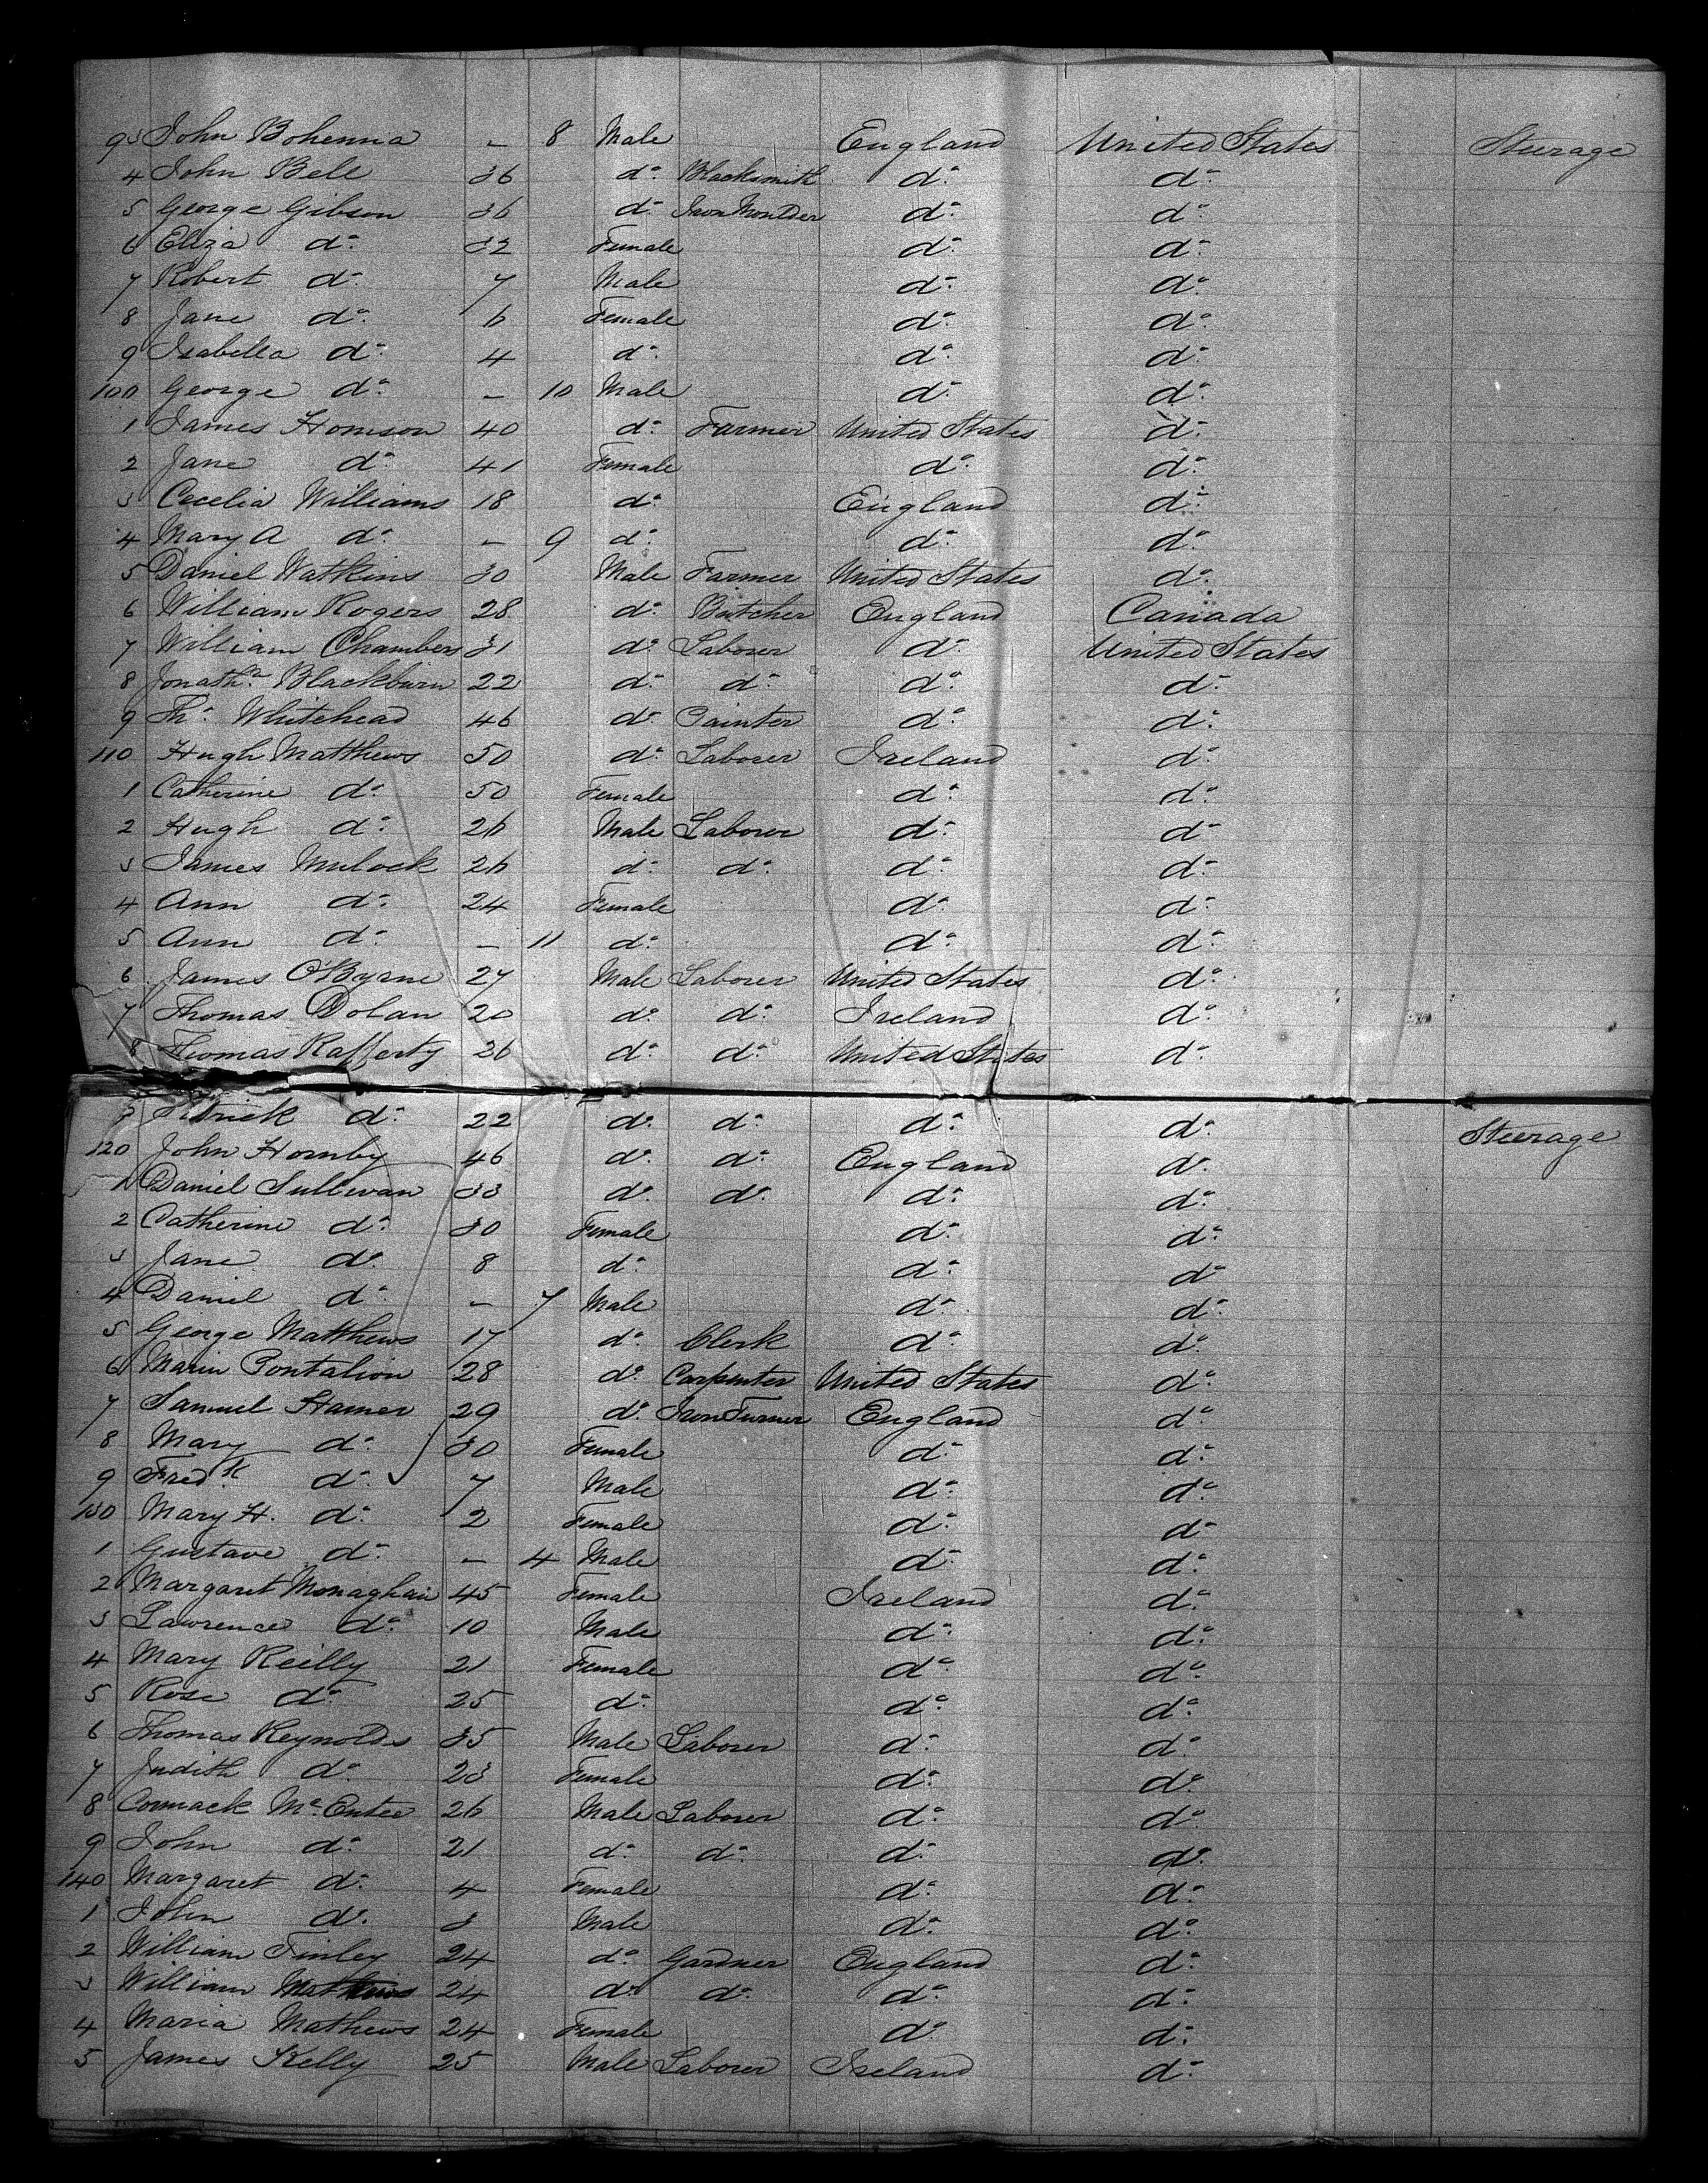 93 John Bohenna - 8 Male England United States Steerage
4 John Bell 36 do. Blacksmith do. do.
5 George Gibson 36 do. Iron Moulder do. do.
6 Eliza do. 32 Female do. do.
7 Robert do. 7 Male do. do.
8 Jane do. 6 Female do. do.
9 Isabella do. 4 do. do. do.
100 George do. - 10 Male do. do.
1 James Homson 40 do. Farmer United States do.
2 Jane do. 41 Female do. do.
3 Cecelia Williams 18 do. England do.
4 Mary A do. - 9 do. do. do.
5 Daniel Watkins 30 Male Farmer United States do.
6 William Rogers 28 do. Butcher England Canada
7 William Chambers 31 do. Laborer do. United States
8 Jonathn Blackburn 22 do. do. do. do.
9 Tho. Whitehead 46 do. Painter do. do.
110 Hugh Matthews 50 do. Laborer Ireland do.
1 Catherine do. 50 Female do. do.
2 Hugh do. 26 Male Laborer do. do.
3 James Mulock 26 do. do. do. do.
4 Ann do. 24 Female do. do.
5 Ann do. - 11 do. do. do.
6 James O'Byrne 27 Male Laborer United States do.
7 Thomas Dolan 20 do. do. Ireland do.
8 Thomas Rafferty 26 do. do. United States do.
9 Patrick do. 22 do. do. do. do. Steerage
120 John Hornby 46 do. do. England do.
1 Daniel Sullivan 33 do. do. do. do.
2 Catherine do. 30 Female do. do.
3 Jane do. 8 do. do. do.
4 Daniel do. - 7 Male do. do.
5 George Matthews 17 do. Clerk do. do.
6 Marin Pontalion 28 do. Carpenter United States do.
7 Samuel Hamer 29 do. Iron Turner England do.
8 Mary do. 30 Female do. do.
9 Fredk. do. 7 Male do. do.
130 Mary H. do. 2 Female do. do.
1 Gustave do. - 4 Male do. do.
2 Margaret Monaghan 45 Female Ireland do.
3 Lawrence do. 10 Male do. do.
4 Mary Reilly 21 Female do. do.
5 Rose do. 25 do. do. do.
6 Thomas Reynolds 35 Male Laborer do. do.
7 Judith do. 23 Female do. do.
8 Cormack McEntee 26 Male Laborer do. do.
9 John do. 21 do. do. do. do.
140 Margaret do. 4 Female do. do.
1 John do. 3 Male do. do.
2 William Finley 24 do. Gardner England do.
3 William 24 do. do. do. do.
4 Maria Mathews 24 Female do. do.
5 James Kelly 25 Male Laborer Ireland do.